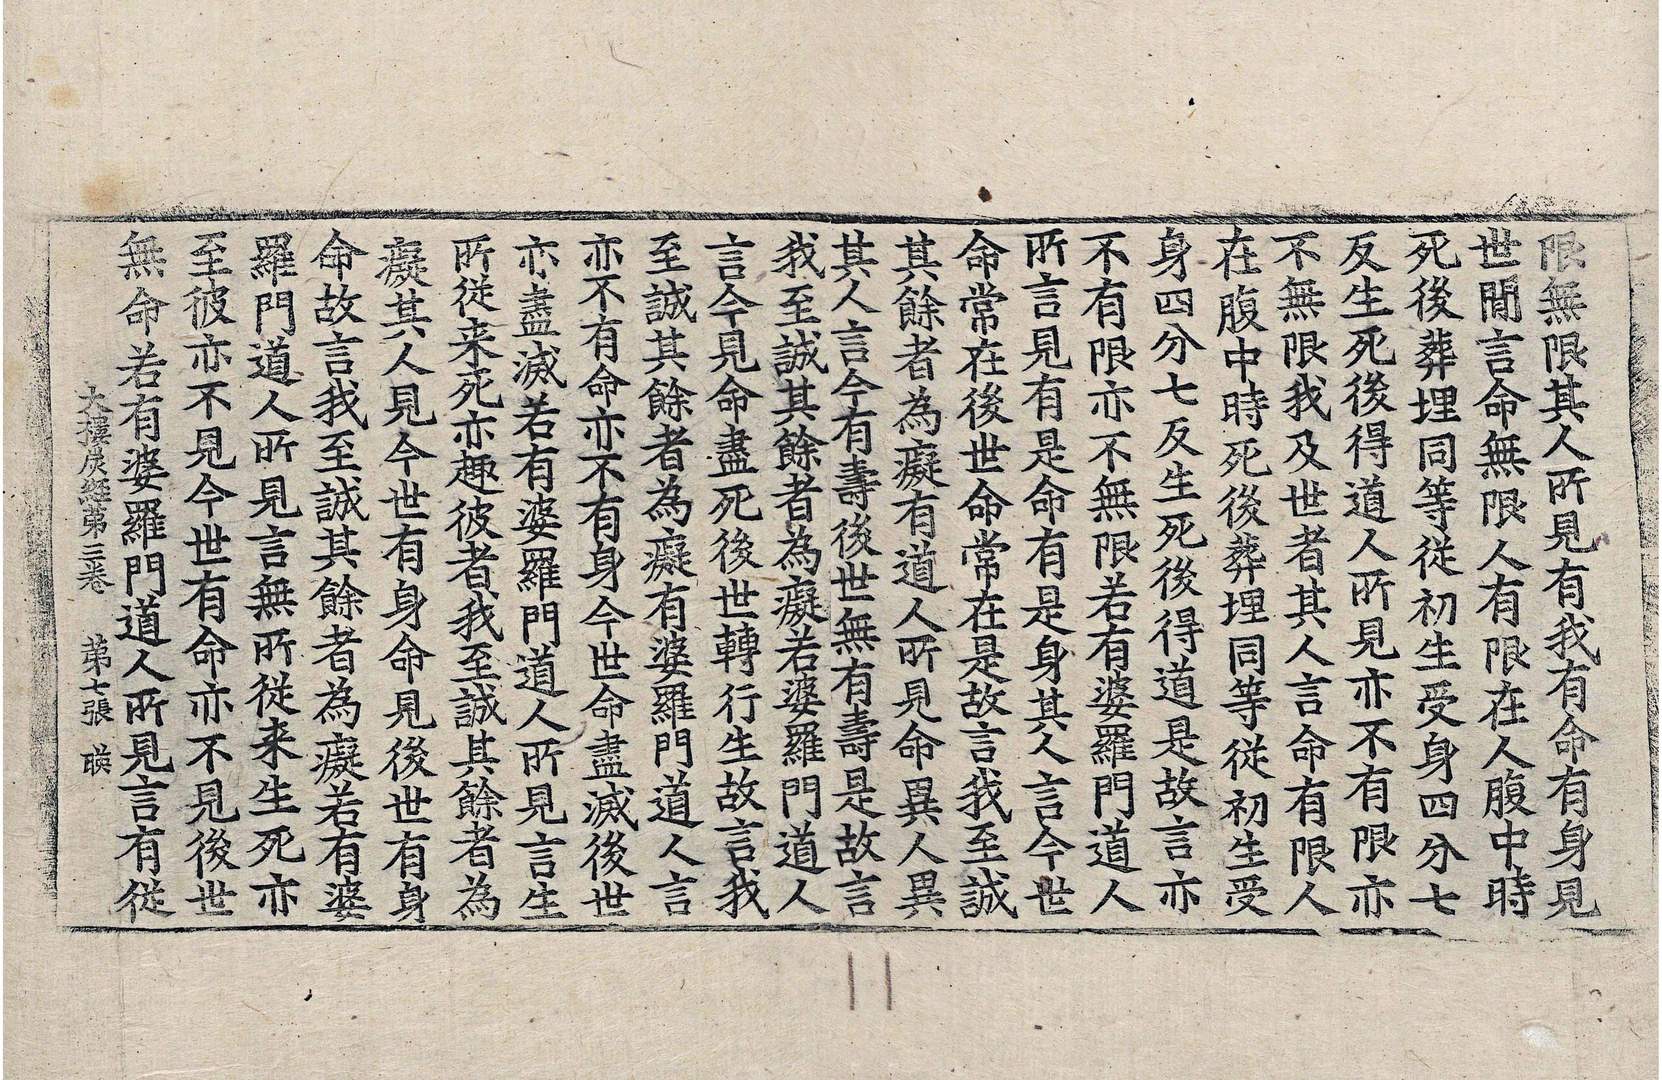 限無限其人所見有我有命有身見
世間言命無限人有限在人腹中時
死後葬埋同等從初生受身四分七
反生死後得道人所見亦不有限亦
不無限我及世者其人言命有限人
在腹中時死後葬埋同等從初生受
身四分七反生死後得道是故言亦
不有限亦不無限若有婆羅門道人
所言見有是命有是身其人言今世
命常在後世命常在是故言我至誠
其餘者為癡有道人所見命異人異
其人言今有壽後世無有壽是故言
我至誠其餘者為癡若婆羅門道人
言今見命盡死後世轉行生故言我
至誠其餘者為癡有婆羅門道人言
亦不有命亦不有身今世命盡滅後世
亦盡滅若有婆羅門道人所見言生
所從来死亦趣彼者我至誠其餘者為
癡其人見今世有身命見後世有身
命故言我至誠其餘者為癡若有婆
羅門道人所見言無所從来生死亦
至彼亦不見今世有命亦不見後世
無命若有婆羅門道人所見言有從
大樓炭経苐三卷 苐七張 暎